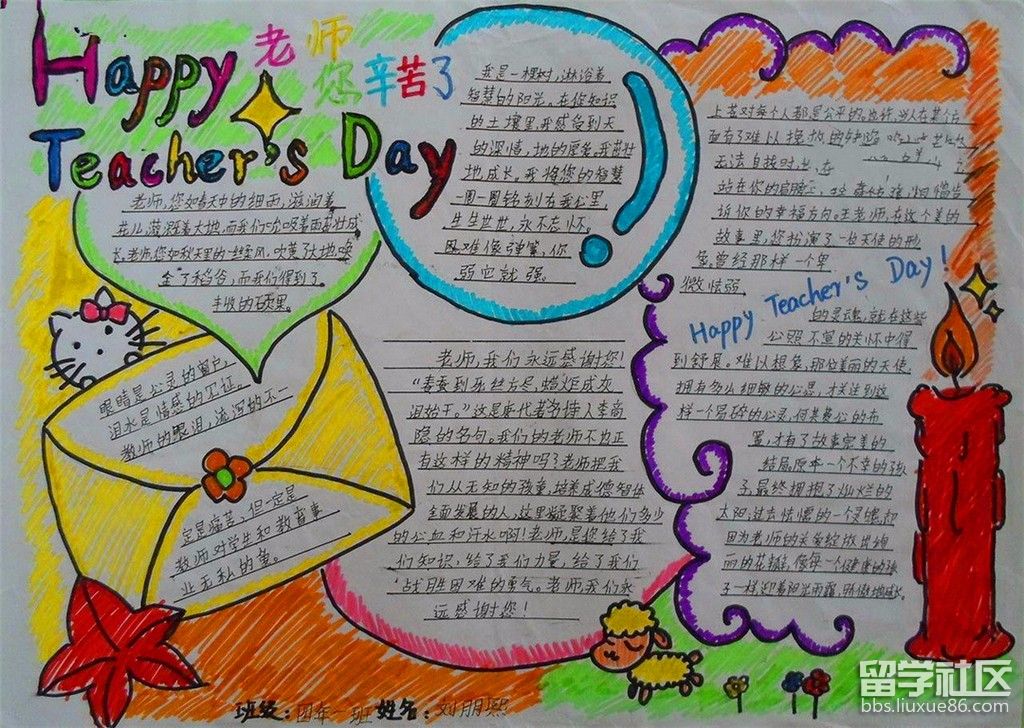 Happy
老师
您辛苦了
Teacher's Day
老师,您如春天中的细雨,滋润着
花儿,滋养着大地,而我们吮吸着雨茁壮成
长。老师,您如秋天里的一缕柔风,吹黄了大地,唤
金了稻谷,而我们得到了
丰收的硕果。
我是一棵树,淋浴着
智慧的阳光,在您知识
的土壤里,我感受到天
的深情,地的厚爱,我茁壮
地成长,我将您的智慧
一圈一圈铭刻在我心里,
生生世世,永不忘怀。
困难像弹簧,你
弱它就强。
上苍对每个人都是公平的。也许,当人在某个方
面有了难以挽救的缺陷
无法自拔时,
站在你的肩膀
诉你的幸福方向。王老师,在这个美的
故事里,您扮演了一位天使的形
象。曾经那样一个卑
微怯弱
Happy Teacher's Day!
的灵魂,就在这些
心照不宣的关怀中得
到舒展。难以想象,那位美丽的天使
拥有多么细腻的心思,才洼到这
样一个易碎的心灵,何其费心的布
置,才有了故事完美的
结局。原本一个不幸的孩
子,最终拥抱了灿烂的
太阳;过去怯懦的一个灵魂,却
因为老师的关爱绽放出绚
丽的花瓣,像每一个健康的孩
子一样迎着阳光雨露,骄傲地成长。
眼睛是心灵的窗户,
泪水是情感的见证。
教师的眼泪,流泻的不一
定是痛苦,但一定是
教师对学生和教育事
业无私的鱼。
老师,我们永远感谢您!
"春蚕到死丝方尽,蜡炬成灰
泪始干。"这是唐代著名诗人李商
隐的名句。我们的老师不也正
有这样的精神吗?老师把我
们从无知的孩童,培养成德智体
全面发展的人,这里凝聚着他们多少
的心血和汗水啊!老师,是您给了我
们知识,给了我们力量,给了我们
战胜困难的勇气。老师,我们永
远感谢您!
班级:四年一班 姓名:刘朋熙
留学社区
bbs.liuxue86.com